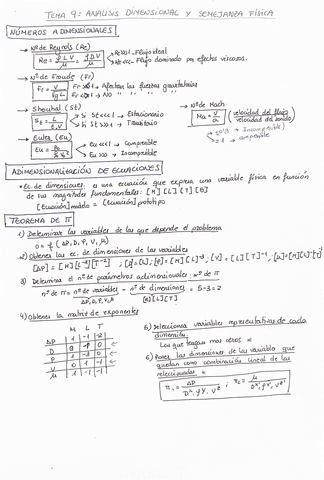 TEMA 9: ANALISIS DIMENSIONAL Y SEMEJANZA FISICA
NÚMEROS ADIMENSIONALES
→ Nº de Reynols (Re)
Re = ρ L V / μ = ρ D V / μ
Re >>1 → Flujo ideal
Re <<< → Flujo dominado por efectos viscosos.
→ Nº de Froude (Fr)
Fr = V / √gL
→ Afectan las fuerzas gravitatorias
→ Strouhal (St)
→ Nº de Mach
St = L / t.V
Si St <<< 1 → Estacionario
Si St >>> 1 → Transitorio
Ma = V / a (velocidad del flujo / velocidad del sonido)
→ Euler (Eu)
Eu <<< 1 → Compresible
Eu >>> → Incompresible
ADIMENSIONALIZACIÓN DE ECUACIONES
• Ec. de dimensiones: es una ecuación que expresa una variable física en función
de sus magnitudes fundamentales: [M] [L] [T] [θ]
[Ecuación] modelo = [Ecuación] prototipo
TEOREMA DE π
1) Determinar las variables de las que depende el problema
0 = f (ΔP, D, ρ, V, μ)
2) Obtener las ec. de dimensiones de las variables
[ΔP] = [M] [L⁻¹] [T⁻²] ; [D] = [L] ; [ρ] = [M] [L]⁻³ ; [V] = [L] [T]⁻¹ ; [μ] = [M] [L]⁻¹ [T]⁻¹
3) Determina el nº de parámetros adimensionales: nº de π
nº de π = nº de variables - nº de dimensiones = 5-3 = 2
ΔP, D, ρ, V, μ [M] [L] [T]
4) Obtener la matriz de exponentes
M L T
ΔP 1 -1 -2
D 0 1 0
ρ 1 -3 0
V 0 1 -1
μ 1 -1 -1
5) Selecciona variables representativas de cada
dimensión:
Las que tengan más ceros
6) Pones las dimensiones de las variables que
quedan como combinación lineal de las
seleccionadas
π₁ = ΔP / Dˣ, ρʸ, Vᶻ ; π₂ = μ / Dˣ', ρʸ', Vᶻ'